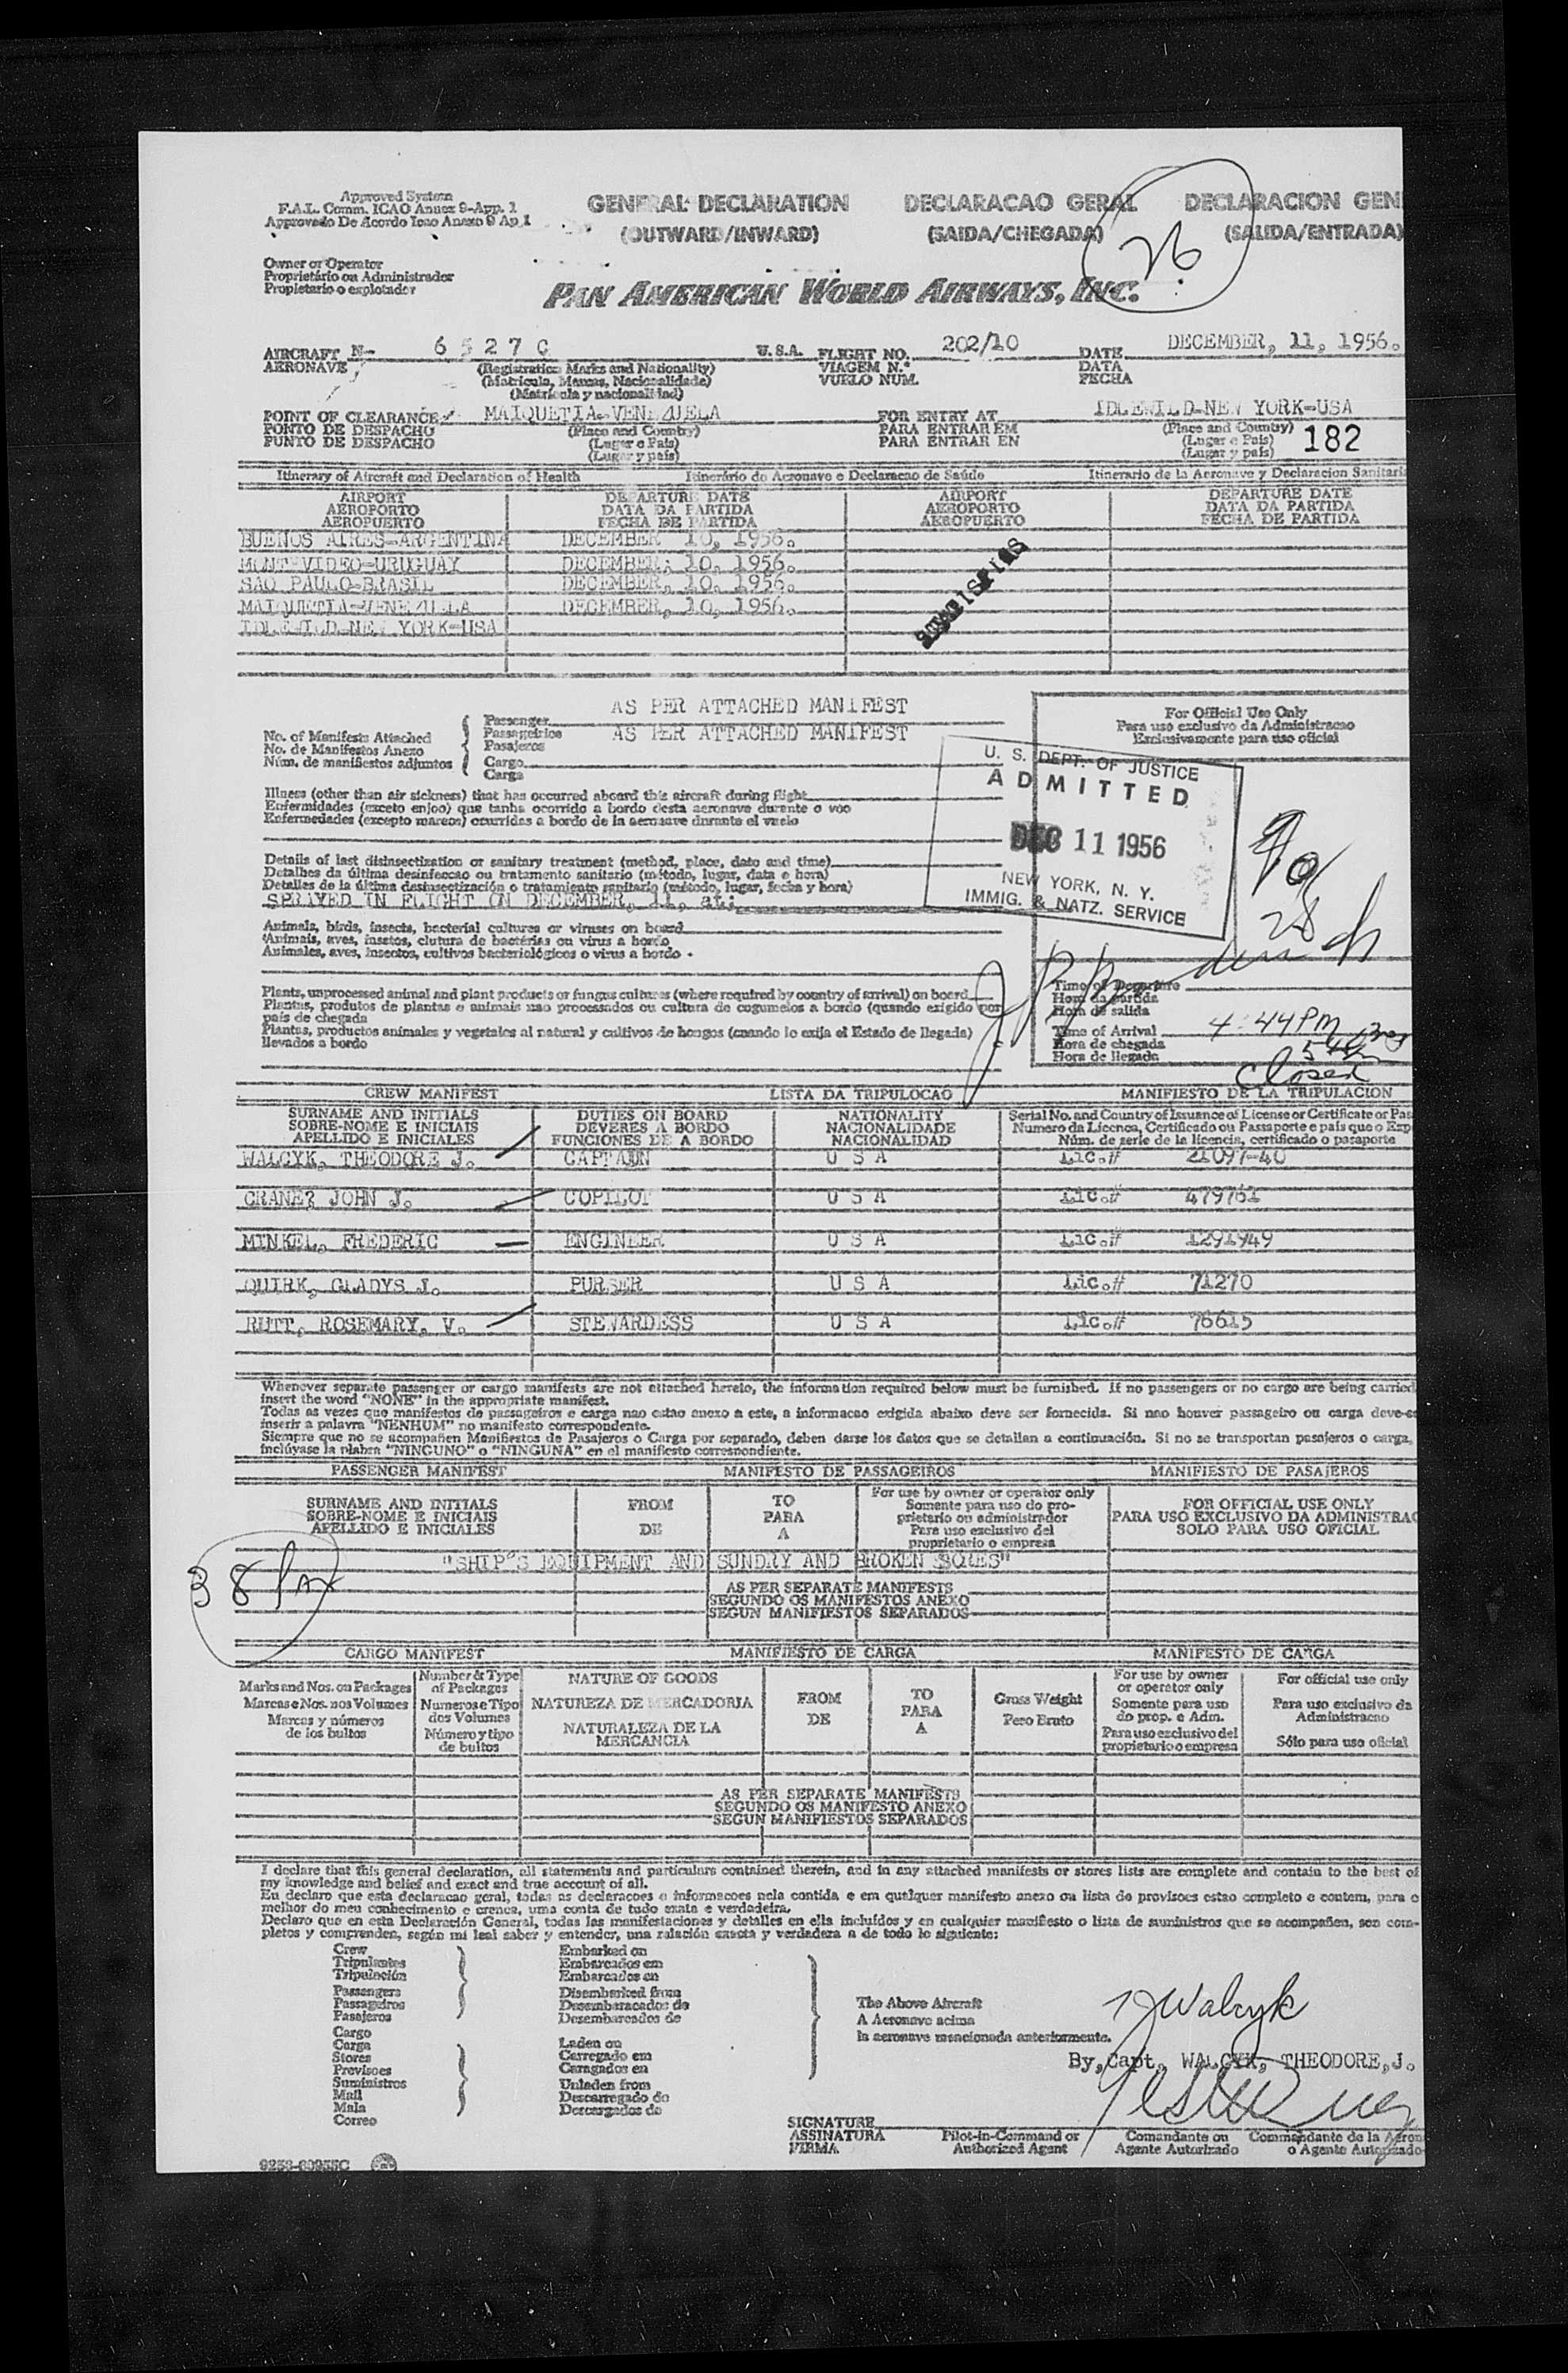 Approved System
F.A.L. Comm. ICAO Annex 9-App. 1
Approvado De Acordo Icao Anexo 9 Ap 1
GENERAL DECLARATION
(OUTWARD/INWARD)
DECLARACAO GERAL
(SAIDA/CHEGADA)
DECLARACION GEN
(SALIDA/ENTRADA)
26
Owner or Operator
Proprietário ou Administrador
Propietario o explotador
PAN AMERICAN WORLD AIRWAYS, INC.
AIRCRAFT N- 6 5 2 7 C U.S.A. FLIGHT NO. 202/10 DATE DECEMBER, 11, 1956.
AERONAVE (Registration Marks and Nationality) VIAGEM N.º DATA
(Matricula, Marcas, Nacionalidade) VUELO NUM. FECHA
(Matrícula y nacionalidad)
POINT OF CLEARANCE MAIQUETIA-VENEZUELA FOR ENTRY AT IDLEWILD-NEW YORK-USA
PONTO DE DESPACHO (Place and Country) PARA ENTRAR EM (Place and Country)
PUNTO DE DESPACHO (Lugar e País) PARA ENTRAR EN (Lugar e País) 182
(Lugar y país) (Lugar y país)
Itinerary of Aircraft and Declaration of Health Itinerário do Aeronave e Declaracao de Saúde Itinerario de la Aeronave y Declaracion Sanitaria
AIRPORT DEPARTURE DATE AIRPORT DEPARTURE DATE
AEROPORTO DATA DA PARTIDA AEROPORTO DATA DA PARTIDA
AEROPUERTO FECHA DE PARTIDA AEROPUERTO FECHA DE PARTIDA
BUENOS AIRES-ARGENTINA DECEMBER 10, 1956.
MONTEVIDEO-URUGUAY DECEMBER, 10, 1956.
SAO PAULO-BRASIL DECEMBER, 10, 1956.
MAIQUETIA-VENEZUELA DECEMBER, 10, 1956.
IDLEWILD-NEW YORK-USA
No. of Manifests Attached
No. de Manifestos Anexo
Núm. de manifiestos adjuntos
Passenger AS PER ATTACHED MANIFEST
Passageirios AS PER ATTACHED MANIFEST
Pasajeros
Cargo
Carga
For Official Use Only
Para uso exclusivo da Administracao
Exclusivamente para uso oficial
U. S. DEPT. OF JUSTICE
ADMITTED
DEC 11 1956
NEW YORK, N. Y.
IMMIG. & NATZ. SERVICE
28
Illness (other than air sickness) that has occurred aboard this aircraft during flight
Enfermidades (exceto enjoo) que tenha ocorrido a bordo desta aeronave durante o voo
Enfermedades (excepto mareos) ocurridas a bordo de la aeronave durante el vuelo
Details of last disinsectization or sanitary treatment (method, place, date and time)
Detalhes da última desinfeccao ou tratamento sanitario (método, lugar, data e hora)
Detalles de la última desinsectización o tratamiento sanitario (método, lugar, fecha y hora)
SPRAYED IN FLIGHT ON DECEMBER, 11, at:
Animals, birds, insects, bacterial cultures or viruses on board
Animais, aves, insetos, clutura de bactérias ou virus a bordo
Animales, aves, insectos, cultivos bacteriológicos o virus a bordo
Plants, unprocessed animal and plant products or fungus cultures (where required by country of arrival) on board
Plantas, produtos de plantas e animais nao processados ou cultura de cogumelos a bordo (quando exigido por
país de chegada
Plantas, productos animales y vegetales al natural y cultivos de hongos (cuando lo exija el Estado de llegada)
llevados a bordo
Time of Departure
Hora da partida
Hora de salida
Time of Arrival 4:44 PM
Hora de chegada
Hora de llegada
Closed
CREW MANIFEST LISTA DA TRIPULOCAO MANIFIESTO DE LA TRIPULACION
SURNAME AND INITIALS DUTIES ON BOARD NATIONALITY Serial No. and Country of Issuance of License or Certificate or Pas
SOBRE-NOME E INICIAIS DEVERES A BORDO NACIONALIDADE Numero da Licenca, Certificado ou Passaporte e país que o Exp
APELLIDO E INICIALES FUNCIONES DE A BORDO NACIONALIDAD Núm. de serie de la licencia, certificado o pasaporte
WALCYK, THEODORE J. CAPTAIN U S A Lic.# 21097-40
CRANE, JOHN J. COPILOT U S A Lic.# 479761
MINKEL, FREDERIC ENGINEER U S A Lic.# 1291949
QUIRK, GLADYS J. PURSER U S A Lic.# 71270
RUTT, ROSEMARY, V. STEWARDESS U S A Lic.# 76615
Whenever separate passenger or cargo manifests are not attached hereto, the information required below must be furnished. If no passengers or no cargo are being carried
insert the word "NONE" in the appropriate manifest.
Todas as vezes que manifestos de passageiros e carga nao estao anexo a este, a informacao exigida abaixo deve ser fornecida. Si nao houver passageiro ou carga deve-se
inserir a palavra "NENHUM" no manifesto correspondente.
Siempre que no se acompañen Manifiestos de Pasajeros o Carga por separado, deben darse los datos que se detallan a continuación. Si no se transportan pasajeros o carga,
inclúyase la plabra "NINGUNO" o "NINGUNA" en el manifiesto correspondiente.
PASSENGER MANIFEST MANIFESTO DE PASSAGEIROS MANIFIESTO DE PASAJEROS
SURNAME AND INITIALS
SOBRE-NOME E INICIAIS
APELLIDO E INICIALES
FROM
DE
TO
PARA
A
For use by owner or operator only
Somente para uso do pro-
prietario ou administrador
Para uso exclusivo del
proprietario o empresa
FOR OFFICIAL USE ONLY
PARA USO EXCLUSIVO DA ADMINISTRAC
SOLO PARA USO OFICIAL
"SHIP'S EQUIPMENT AND SUNDRY AND BROKEN STORES"
38 Pax
AS PER SEPARATE MANIFESTS
SEGUNDO OS MANIFESTOS ANEXO
SEGUN MANIFIESTOS SEPARADOS
CARGO MANIFEST MANIFIESTO DE CARGA MANIFESTO DE CARGA
Marks and Nos. on Packages
Marcas e Nos. nos Volumes
Marcas y números
de los bultos
Number & Type
of Packages
Numeros e Tipo
dos Volumes
Número y tipo
de bultos
NATURE OF GOODS
NATUREZA DE MERCADORIA
NATURALEZA DE LA
MERCANCIA
FROM
DE
TO
PARA
A
Gross Weight
Peso Bruto
For use by owner
or operator only
Somente para uso
do prop. e Adm.
Para uso exclusivo del
propietario o empresa
For official use only
Para uso exclusivo da
Administracao
Sólo para uso oficial
AS PER SEPARATE MANIFESTS
SEGUNDO OS MANIFESTO ANEXO
SEGUN MANIFIESTOS SEPARADOS
I declare that this general declaration, all statements and particulars contained therein, and in any attached manifests or stores lists are complete and contain to the best of
my knowledge and belief and exact and true account of all.
Eu declaro que esta declaracao geral, todas as declaracoes e informacoes nela contida e em qualquer manifesto anexo ou lista de provisoes estao completo e contem, para o
melhor do meu conhecimento e crenca, uma conta de tudo exata e verdadeira.
Declaro que en esta Declaración General, todas las manifestaciones y detalles en ella incluídos y en cualquier manifiesto o lista de suministros que se acompañen, son com-
pletos y comprenden, según mi leal saber y entender, una relación exacta y verdadera a de todo lo siguiente:
Crew
Tripulantes
Tripulación
Passengers
Passageiros
Pasajeros
Cargo
Carga
Stores
Provisoes
Suministros
Mail
Mala
Correo
Embarked on
Embarcados em
Embarcados en
Disembarked from
Desembaracados de
Desembarcados de
Laden on
Carregado em
Caragados en
Unladen from
Descarregado do
Descargados de
The Above Aircraft
A Aeronave acima
la aeronave mencionada anteriormente.
TJ Walcyk
By, Capt. WALCYK, THEODORE, J.
SIGNATURE
ASSINATURA
FIRMA
Pilot-in-Command or
Authorized Agent
Comandante ou
Agente Autorizado
Commandante de la Aeron
o Agente Autorizado